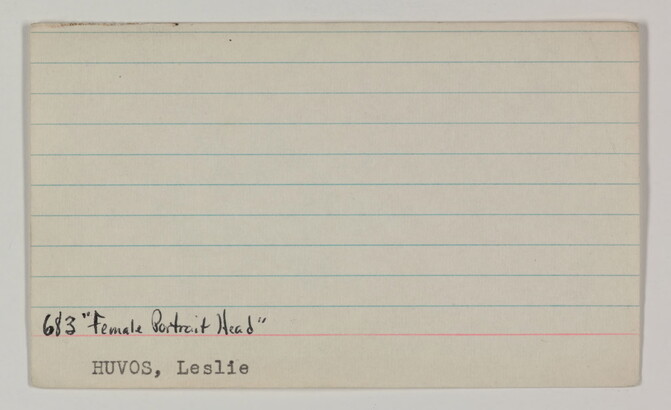 683 "Female Portrait Head"
HUVOS, Leslie